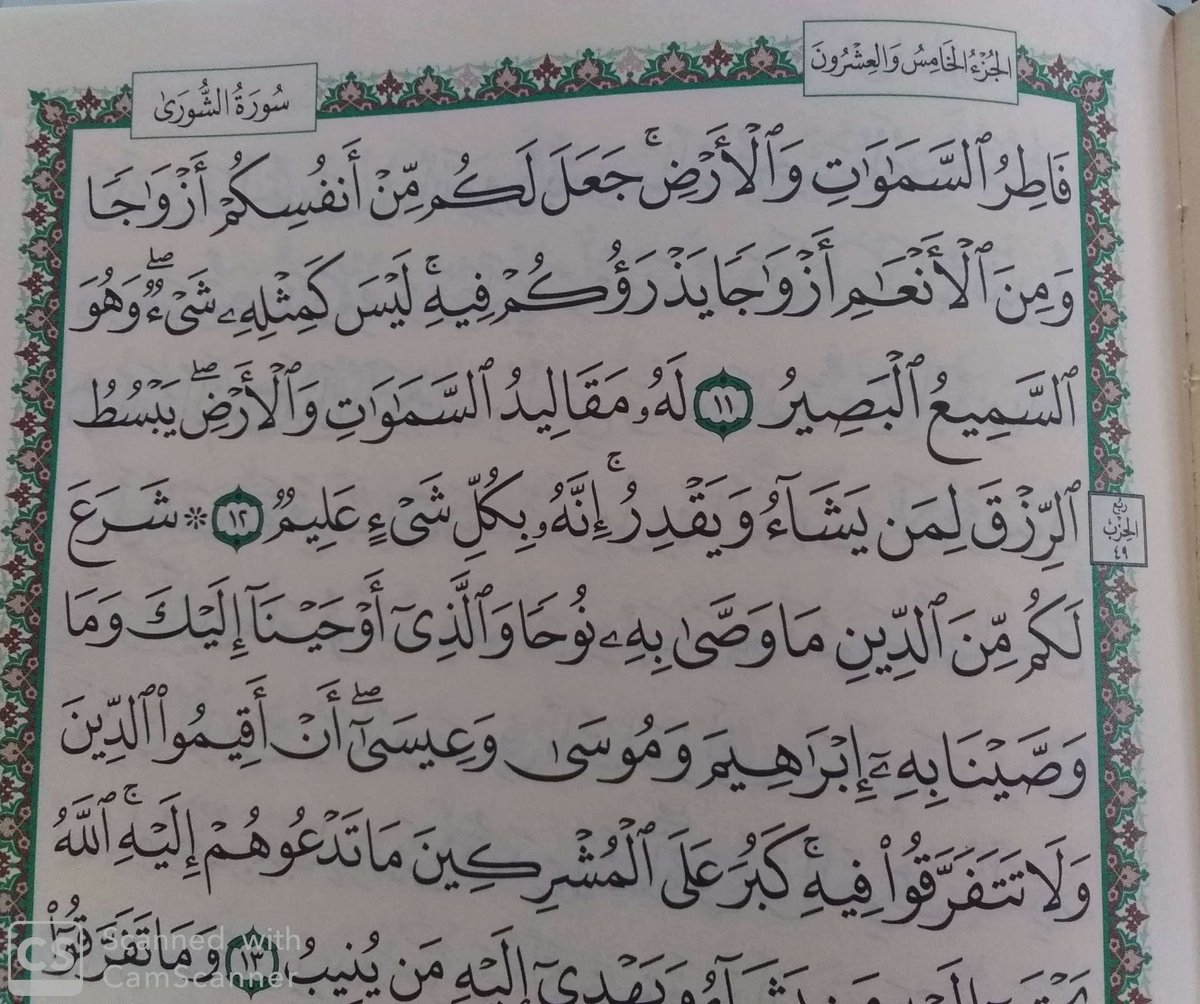 الجُزْءُ الخَامِسُ وَالعِشْرُونَ
سُورَةُ الشُّورَىٰ
فَاطِرُ ٱلسَّمَٰوَٰتِ وَٱلْأَرْضِۚ جَعَلَ لَكُم مِّنْ أَنفُسِكُمْ أَزْوَٰجًا
وَمِنَ ٱلْأَنْعَٰمِ أَزْوَٰجًا يَذْرَؤُكُمْ فِيهِۚ لَيْسَ كَمِثْلِهِۦ شَىْءٌۖ وَهُوَ
ٱلسَّمِيعُ ٱلْبَصِيرُ ١١ لَهُۥ مَقَالِيدُ ٱلسَّمَٰوَٰتِ وَٱلْأَرْضِۖ يَبْسُطُ
ٱلرِّزْقَ لِمَن يَشَآءُ وَيَقْدِرُۚ إِنَّهُۥ بِكُلِّ شَىْءٍ عَلِيمٌ ١٢ ۞ شَرَعَ
ربع
الحزب
٤٩
لَكُم مِّنَ ٱلدِّينِ مَا وَصَّىٰ بِهِۦ نُوحًا وَٱلَّذِىٓ أَوْحَيْنَآ إِلَيْكَ وَمَا
وَصَّيْنَا بِهِۦٓ إِبْرَٰهِيمَ وَمُوسَىٰ وَعِيسَىٰٓۖ أَنْ أَقِيمُوا۟ ٱلدِّينَ
وَلَا تَتَفَرَّقُوا۟ فِيهِۚ كَبُرَ عَلَى ٱلْمُشْرِكِينَ مَا تَدْعُوهُمْ إِلَيْهِۚ ٱللَّهُ
يَشَآءُ وَيَهْدِىٓ إِلَيْهِ مَن يُنِيبُ ١٣ وَمَا تَفَرَّقُوٓا۟
CS Scanned with
CamScanner